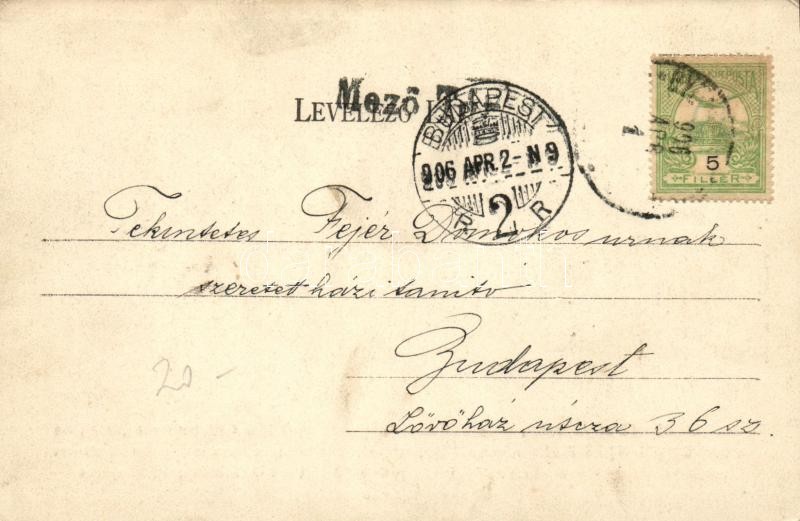 Mező
LEVELEZŐ
BUDAPEST
906 APR. 2 - N 9
2
906
APR
1
POSTA
5
FILLÉR
Tekintetes Fejér Domokos urnak
szeretetházi tanitó
Budapest
Lövőház utcza 36 sz.
20 -